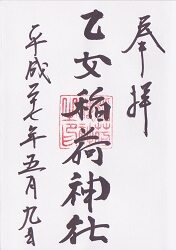 奉拝
乙女稲荷神社
平成廿七年五月九日